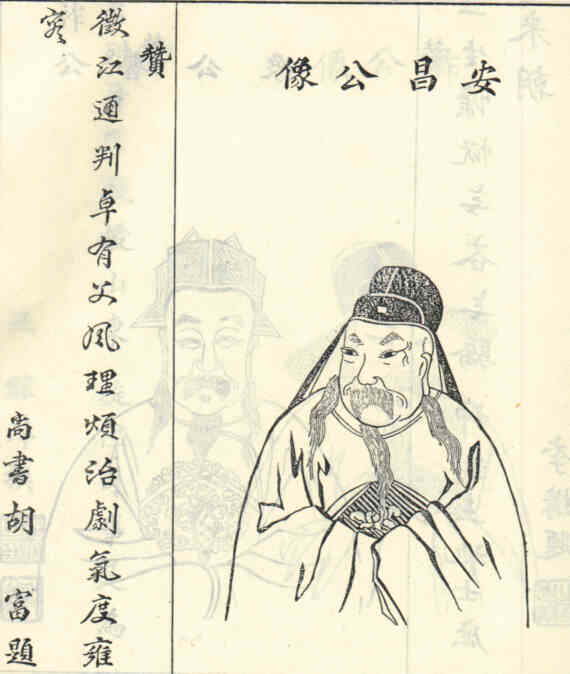 安昌公像
贊
徵江通判卓有父風理煩治劇氣度雍
容 尚書胡 富題